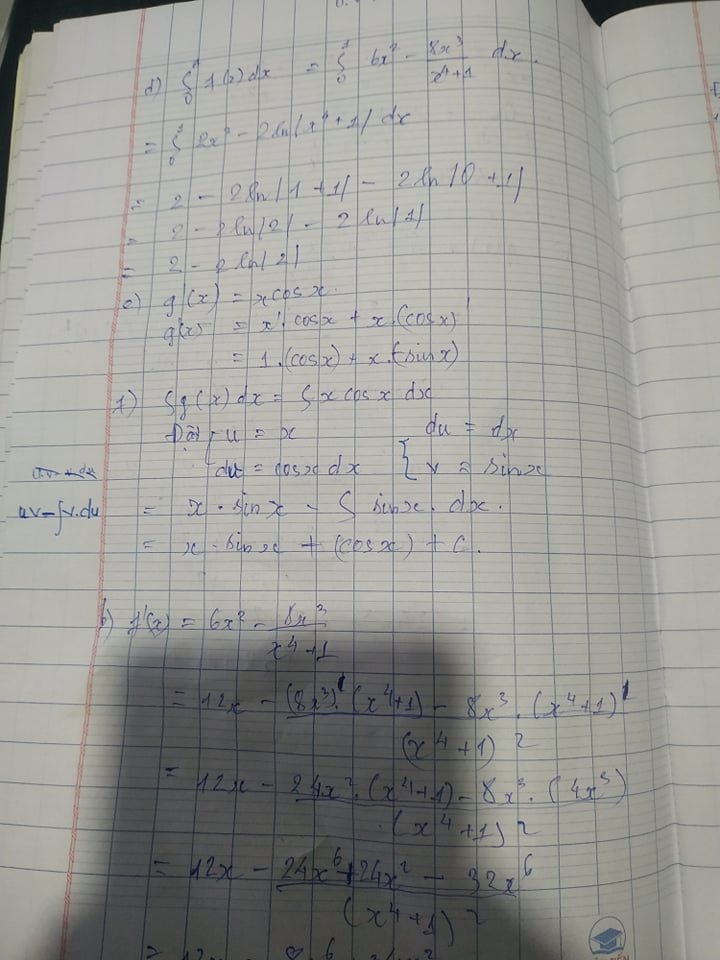 d) ∫₀¹ f(x) dx = ∫₀¹ 6x² - 8x³/(x⁴+1) dx.
= ∫₀¹ 2x³ - 2ln|x⁴+1| dx
= 2 - 2ln|1+1| - 2ln|0+1|
= 2 - 2ln|2| - 2ln|1|
= 2 - 2ln|2|
e) g(x) = xcosx.
g'(x) = x'.cosx + x.(cosx)'
= 1.(cosx) + x.(-sinx)
f) ∫g(x)dx = ∫x cosx dx
Đặt u = x du = dx
dv = cosx dx { v = sinx
uv-∫v.du = x.sinx - ∫ sinx. dx.
= x.sinx + (cosx) + C.
b) f'(x) = 6x² - 8x³/(x⁴+1)
= 12x - ((8x³)'.(x⁴+1) - 8x³.(x⁴+1)')/(x⁴+1)²
= 12x - (24x².(x⁴+1) - 8x³.(4x³))/(x⁴+1)²
= 12x - (24x⁶+24x² - 32x⁶)/(x⁴+1)²